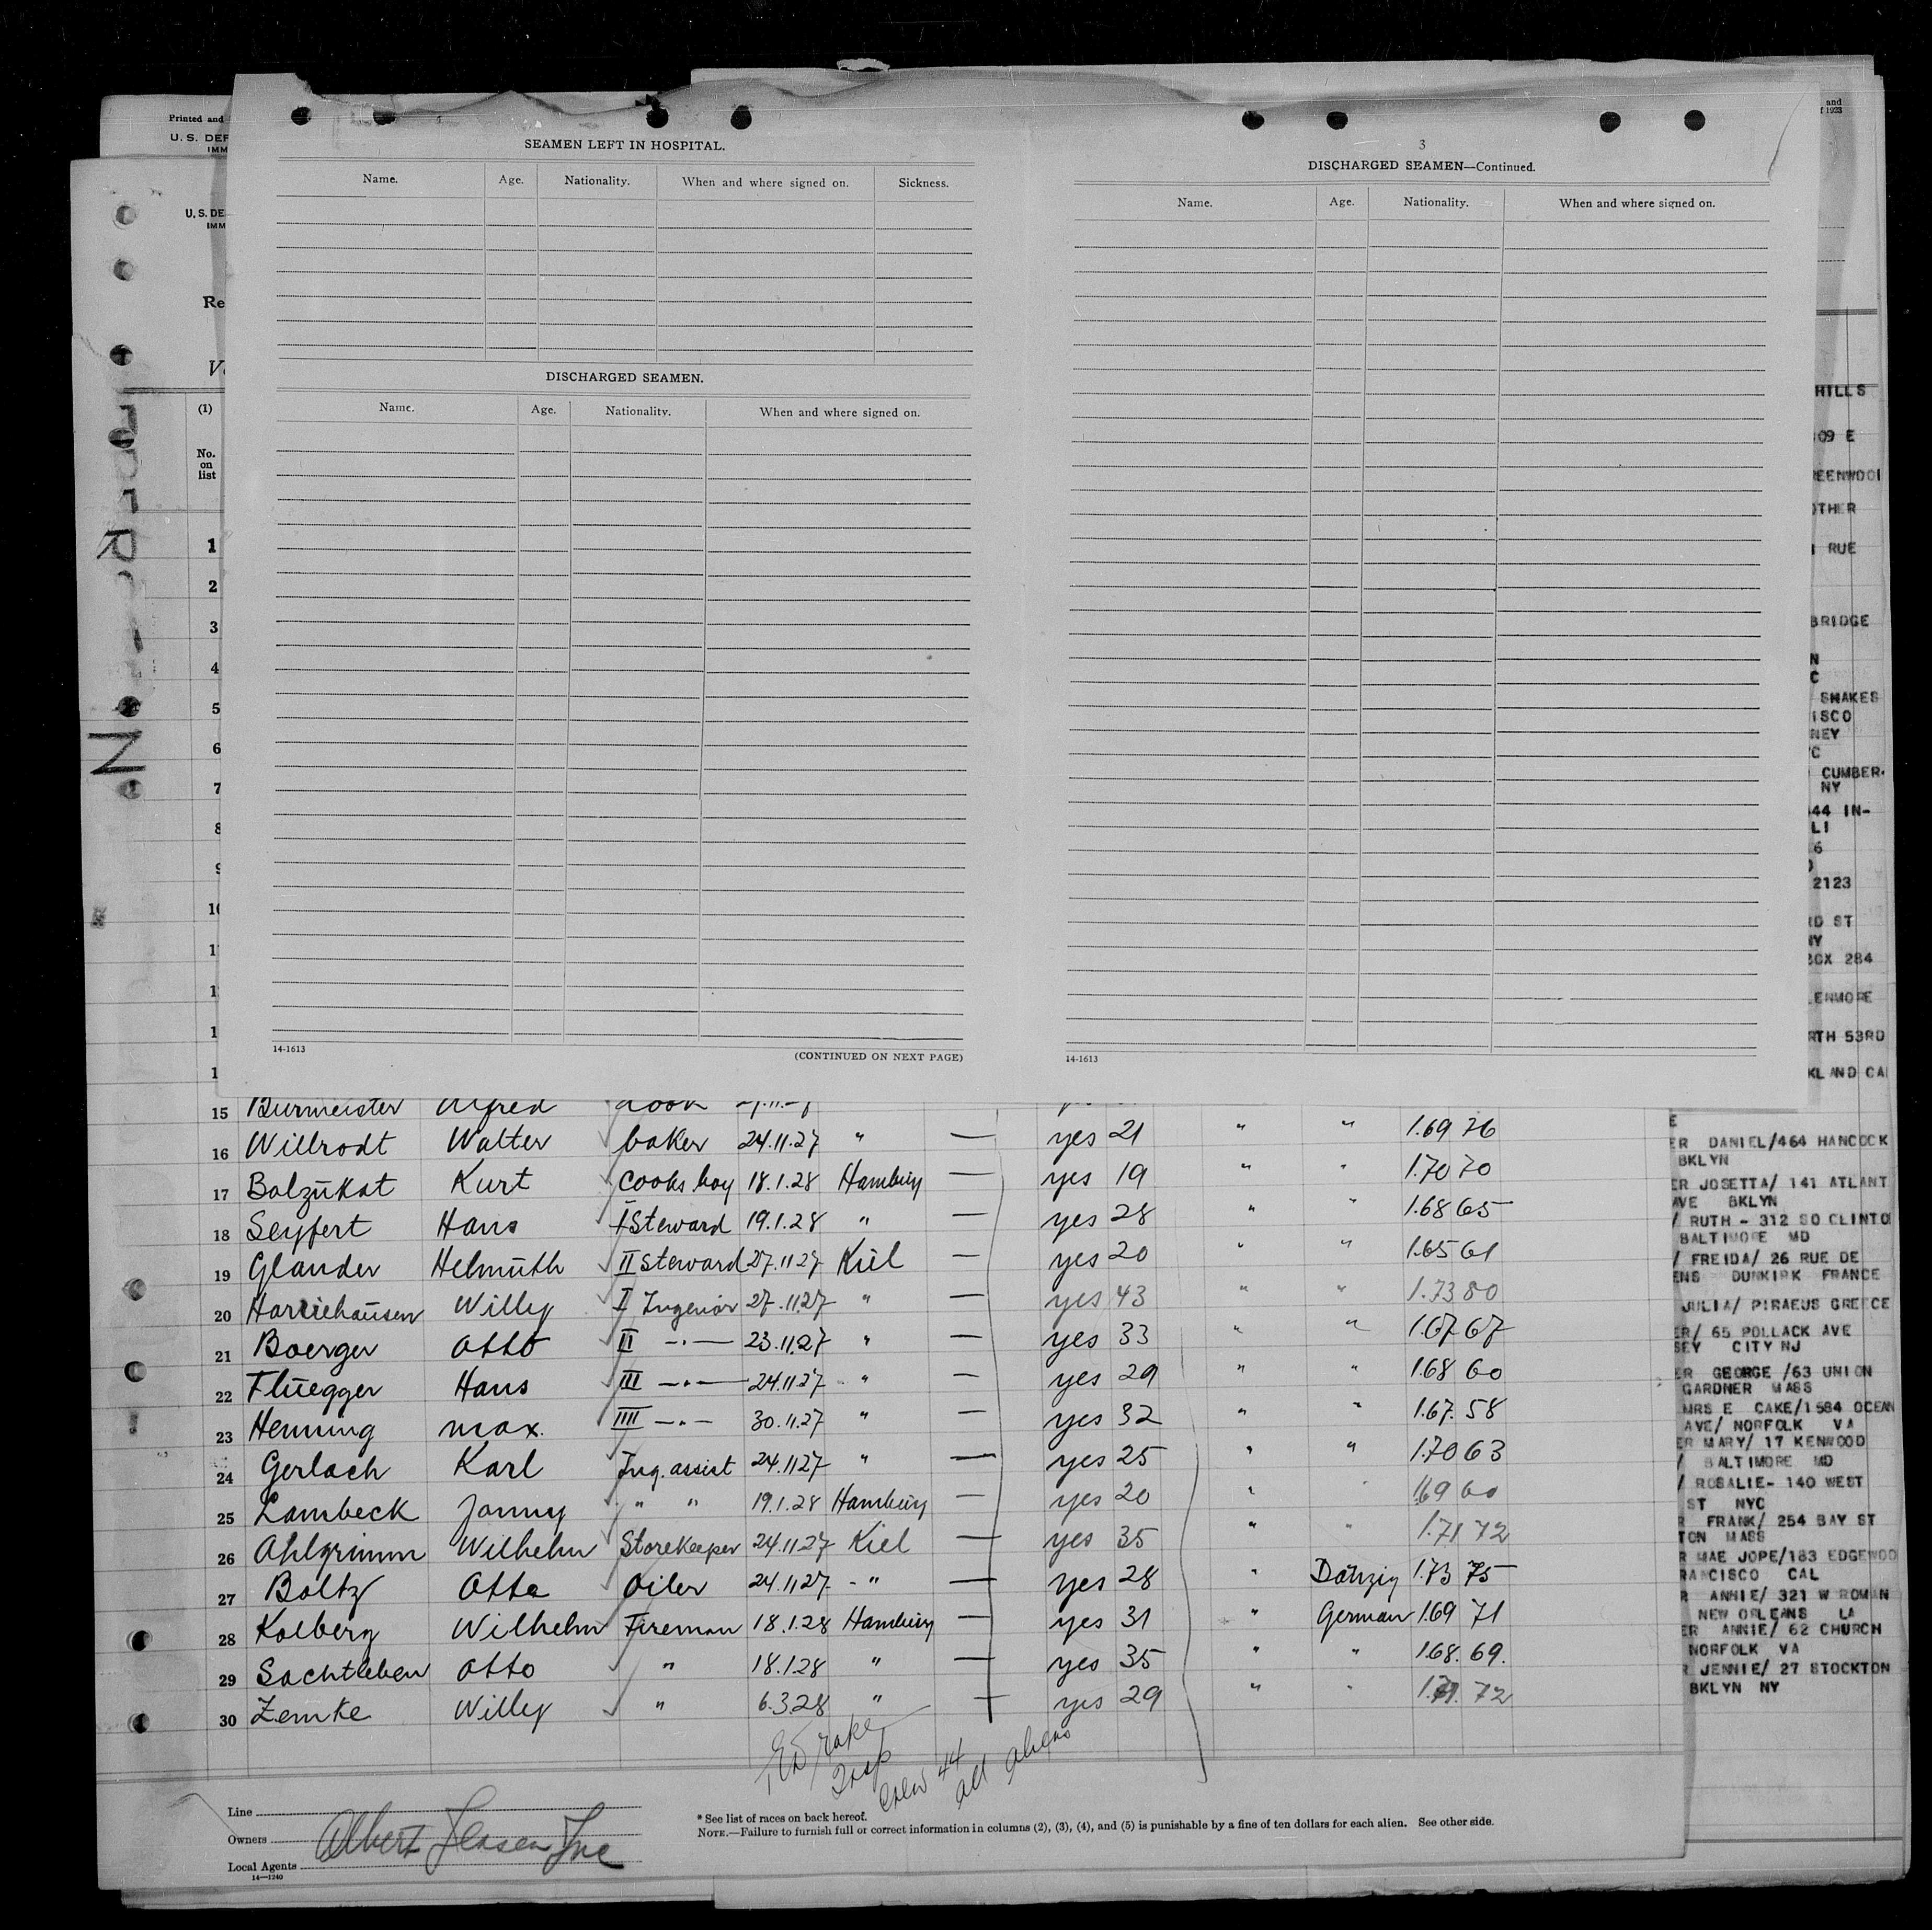 Printed and
U. S. DEP
IMM
and
f 1923
U. S. DE
IMM
Re
(1)
No.
on
list
SEAMEN LEFT IN HOSPITAL.
Name. Age. Nationality. When and where signed on. Sickness.
DISCHARGED SEAMEN.
Name. Age. Nationality. When and where signed on.
14-1613
(CONTINUED ON NEXT PAGE)
3
DISCHARGED SEAMEN—Continued.
Name. Age. Nationality. When and where signed on.
14-1613
1
2
3
4
5
6
7
8
9
10
1
1
1
1
HILLS
09 E
REENWOOD
OTHER
RUE
BRIDGE
N
C
SHAKES
ISCO
NEY
YC
CUMBER-
NY
44 IN-
LI
6
2123
RD ST
NY
BOX 284
LENMORE
RTH 53RD
KLAND CAL
15 Burmeister Alfred Cook
16 Willrodt Walter baker 24.11.27 " — yes 21 " " 1.69 76
17 Balzŭkat Kurt Cooks boy 18.1.28 Hamburg — yes 19 " " 1.70 70
18 Seyfert Hans I Steward 19.1.28 " — yes 28 " " 1.68 65
19 Glander Helmuth II Steward 27.11.27 Kiel — yes 20 " " 1.65 61
20 Harriehausen Willy I Ingeniör 27.11.27 " — yes 43 " " 1.73 80
21 Boerger Otto II —"— 23.11.27 " — yes 33 " " 1.67 67
22 Fluegger Hans III —"— 24.11.27 " — yes 29 " " 1.68 60
23 Henning max. IIII —"— 30.11.27 " — yes 32 " " 1.67. 58
24 Gerlach Karl Ing. assist 24.11.27 " — yes 25 " " 1.70 63
25 Lambeck Jonny " " 19.1.28 Hamburg — yes 20 " " 1.69 60
26 Ahlgrimm Wilhelm Storekeeper 24.11.27 Kiel — yes 35 " " 1.71 72
27 Boltz Otto Oiler 24.11.27 -" — yes 28 " Danzig 1.73 75
28 Kolberg Wilhelm Fireman 18.1.28 Hamburg — yes 31 " German 1.69 71
29 Sachtleben Otto " 18.1.28 " — yes 35 " " 1.68. 69.
30 Zemke Willy " 6.3.28 " — yes 29 " " 72
Drake
Insp
Crew 44
all aliens
E
ER DANIEL/464 HANCOCK
BKLYN
ER JOSETTA/ 141 ATLANT
AVE BKLYN
/ RUTH - 312 SO CLINTO
BALTIMORE MD
/ FREIDA/ 26 RUE DE
ENS DUNKIRK FRANCE
JULIA/ PIRAEUS GREECE
ER/ 65 POLLACK AVE
SEY CITY NJ
ER GEORGE /63 UNION
GARDNER MASS
MRS E CAKE/1584 OCEAN
AVE/ NORFOLK VA
ER MARY/ 17 KENWOOD
/ BALTIMORE MD
/ ROSALIE- 140 WEST
ST NYC
R FRANK/ 254 BAY ST
TON MASS
R MAE JOPE/183 EDGEWOO
RANCISCO CAL
R ANNIE/ 321 W ROMAN
NEW ORLEANS LA
ER ANNIE/ 62 CHURCH
NORFOLK VA
R JENNIE/ 27 STOCKTON
BKLYN NY
Line
Owners
Local Agents
Albert Jensen Inc
14—1240
* See list of races on back hereof.
NOTE.—Failure to furnish full or correct information in columns (2), (3), (4), and (5) is punishable by a fine of ten dollars for each alien. See other side.